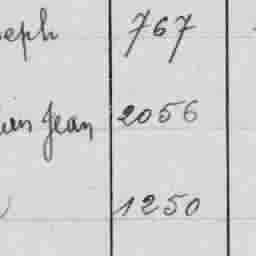 seph 767
Jean 2056
1250